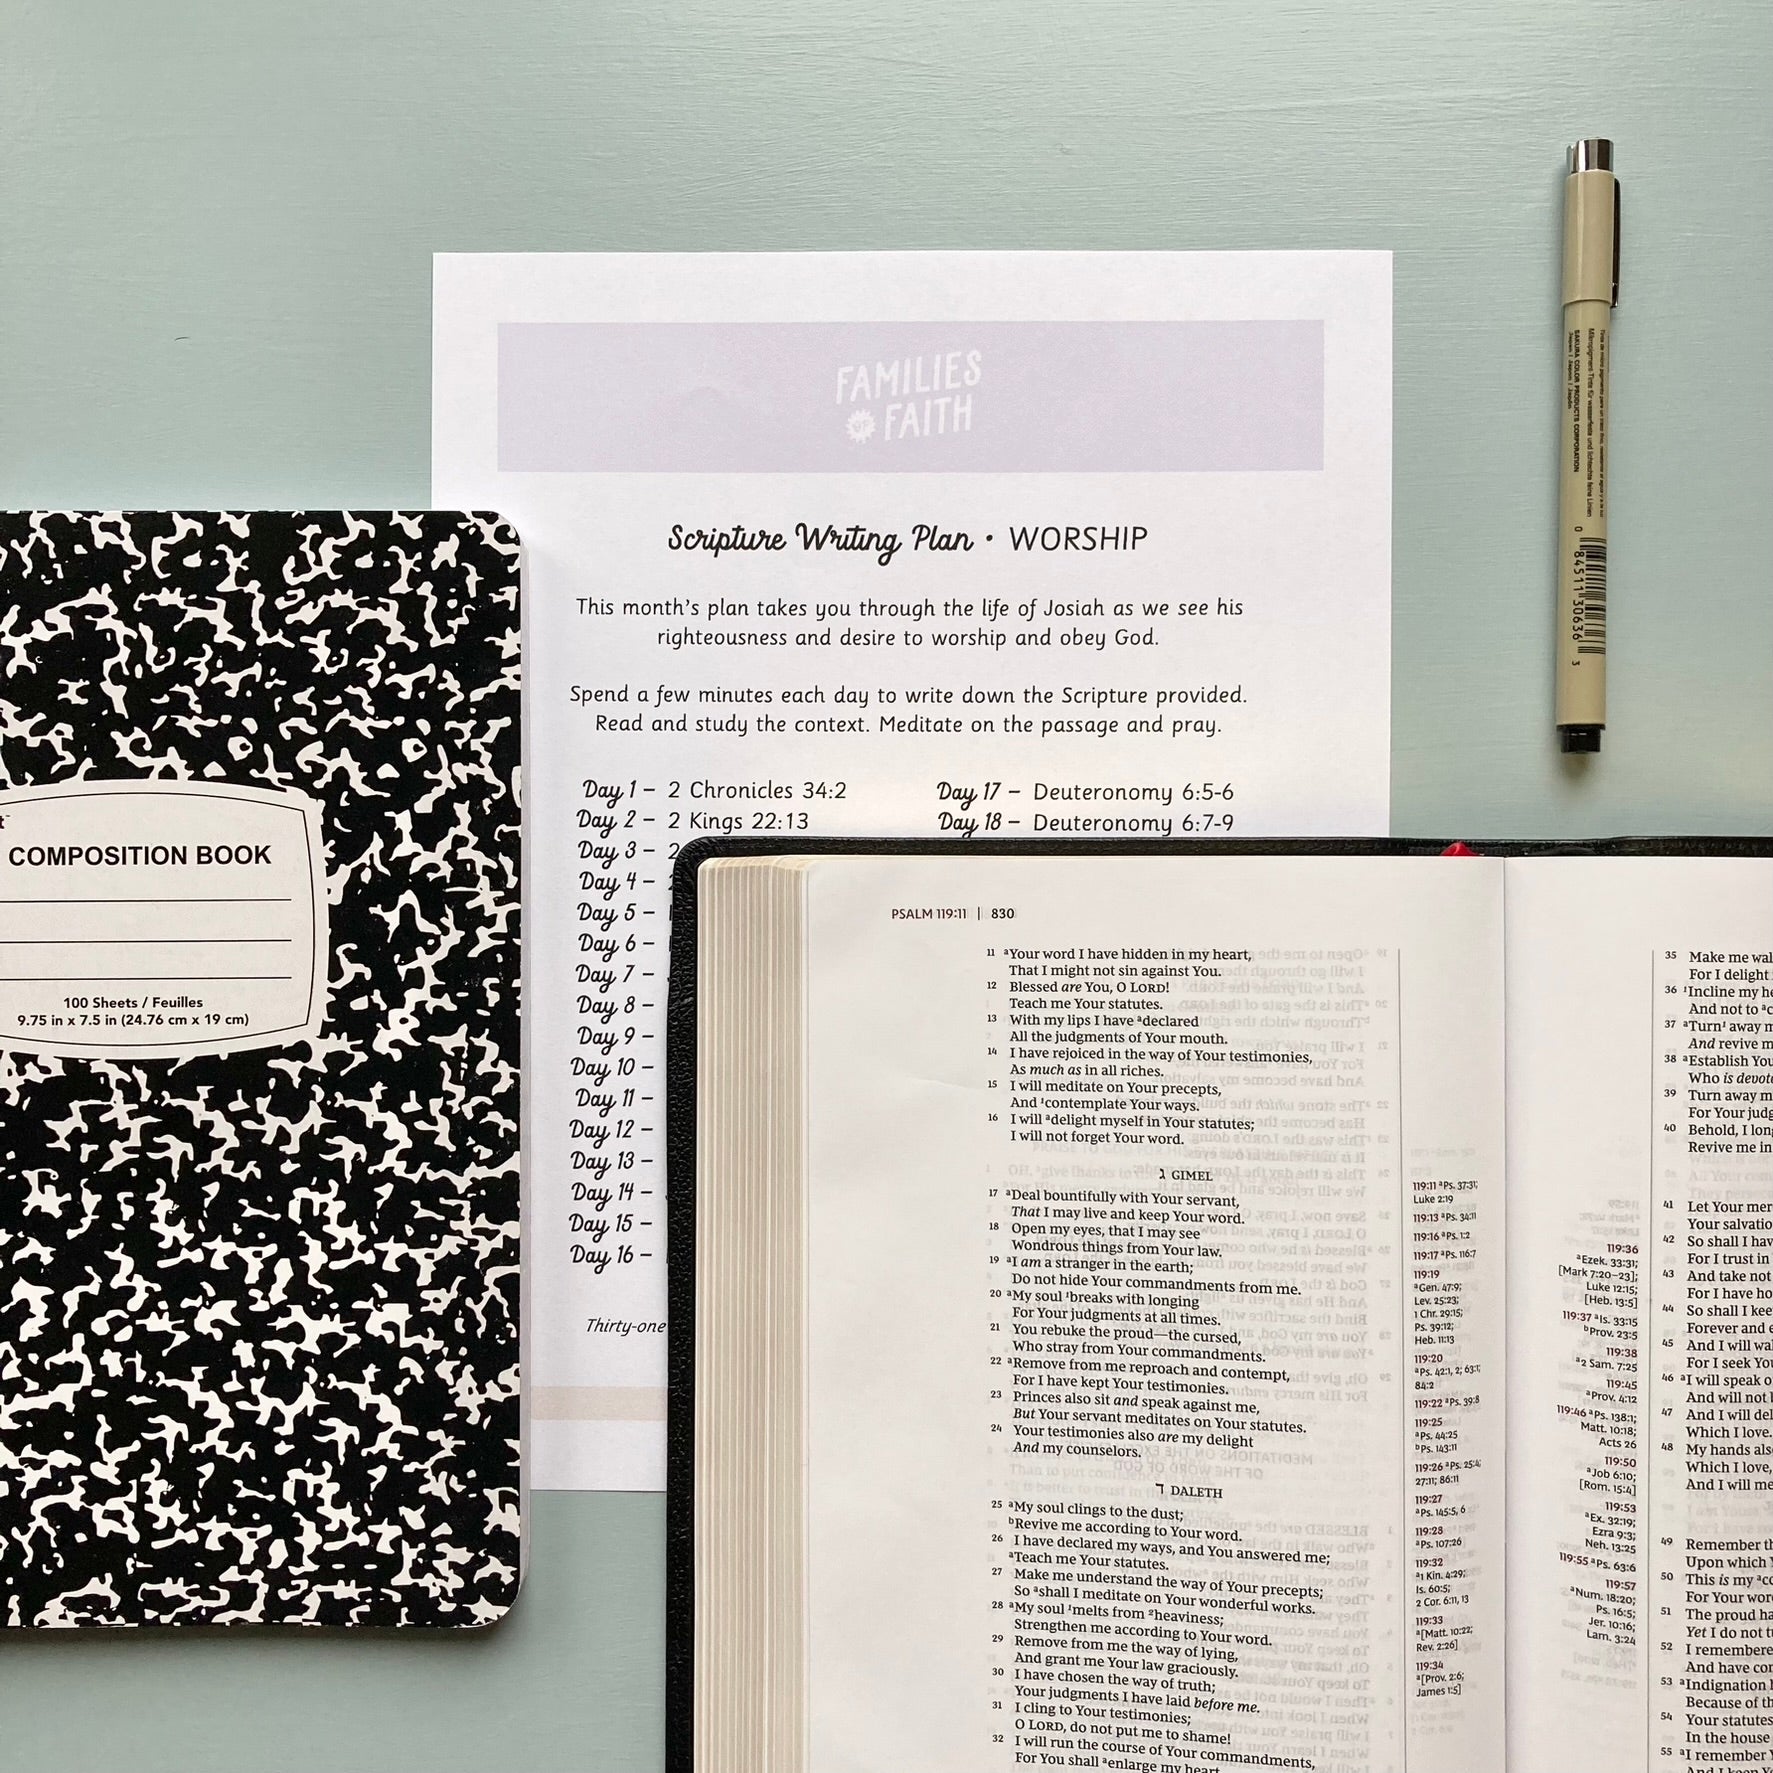 FAMILIES
OF FAITH
Scripture Writing Plan • WORSHIP
This month's plan takes you through the life of Josiah as we see his
righteousness and desire to worship and obey God.
Spend a few minutes each day to write down the Scripture provided.
Read and study the context. Meditate on the passage and pray.
Day 1 – 2 Chronicles 34:2
Day 2 – 2 Kings 22:13
Day 3 – 2
Day 4 –
Day 5 –
Day 6 –
Day 7 –
Day 8 –
Day 9 –
Day 10 –
Day 11 –
Day 12 –
Day 13 –
Day 14 –
Day 15 –
Day 16 –
Day 17 – Deuteronomy 6:5-6
Day 18 – Deuteronomy 6:7-9
Thirty-one
COMPOSITION BOOK
100 Sheets / Feuilles
9.75 in x 7.5 in (24.76 cm x 19 cm)
SAKURA COLOR PRODUCTS CORPORATION
0 84511 30636 3
PSALM 119:11 | 830
11 ᵃYour word I have hidden in my heart,
That I might not sin against You.
12 Blessed are You, O LORD!
Teach me Your statutes.
13 With my lips I have ᵃdeclared
All the judgments of Your mouth.
14 I have rejoiced in the way of Your testimonies,
As much as in all riches.
15 I will meditate on Your precepts,
And ¹contemplate Your ways.
16 I will ᵃdelight myself in Your statutes;
I will not forget Your word.
ג GIMEL
17 ᵃDeal bountifully with Your servant,
That I may live and keep Your word.
18 Open my eyes, that I may see
Wondrous things from Your law.
19 ᵃI am a stranger in the earth;
Do not hide Your commandments from me.
20 ᵃMy soul ¹breaks with longing
For Your judgments at all times.
21 You rebuke the proud—the cursed,
Who stray from Your commandments.
22 ᵃRemove from me reproach and contempt,
For I have kept Your testimonies.
23 Princes also sit and speak against me,
But Your servant meditates on Your statutes.
24 Your testimonies also are my delight
And my counselors.
ד DALETH
25 ᵃMy soul clings to the dust;
ᵇRevive me according to Your word.
26 I have declared my ways, and You answered me;
ᵃTeach me Your statutes.
27 Make me understand the way of Your precepts;
So ᵃshall I meditate on Your wonderful works.
28 ᵃMy soul ¹melts from ²heaviness;
Strengthen me according to Your word.
29 Remove from me the way of lying,
And grant me Your law graciously.
30 I have chosen the way of truth;
Your judgments I have laid before me.
31 I cling to Your testimonies;
O LORD, do not put me to shame!
32 I will run the course of Your commandments,
For You shall ᵃenlarge my heart.
119:11 ᵃPs. 37:31;
Luke 2:19
119:13 ᵃPs. 34:11
119:16 ᵃPs. 1:2
119:17 ᵃPs. 116:7
119:19
ᵃGen. 47:9;
Lev. 25:23;
1 Chr. 29:15;
Ps. 39:12;
Heb. 11:13
119:20
ᵃPs. 42:1, 2; 63:1;
84:2
119:22 ᵃPs. 39:8
119:25
ᵃPs. 44:25
ᵇPs. 143:11
119:26 ᵃPs. 25:4;
27:11; 86:11
119:27
ᵃPs. 145:5, 6
119:28
ᵃPs. 107:26
119:32
ᵃ1 Kin. 4:29;
Is. 60:5;
2 Cor. 6:11, 13
119:33
ᵃ[Matt. 10:22;
Rev. 2:26]
119:34
ᵃ[Prov. 2:6;
James 1:5]
119:36
ᵃEzek. 33:31;
[Mark 7:20–23];
Luke 12:15;
[Heb. 13:5]
119:37 ᵃIs. 33:15
ᵇProv. 23:5
119:38
ᵃ2 Sam. 7:25
119:45
ᵃProv. 4:12
119:46 ᵃPs. 138:1;
Matt. 10:18;
Acts 26
119:50
ᵃJob 6:10;
[Rom. 15:4]
119:53
ᵃEx. 32:19;
Ezra 9:3;
Neh. 13:25
119:55 ᵃPs. 63:6
119:57
ᵃNum. 18:20;
Ps. 16:5;
Jer. 10:16;
Lam. 3:24
35 Make me wal
For I delight
36 ¹Incline my he
And not to ᵃc
37 ᵃTurn¹ away m
And revive m
38 ᵃEstablish You
Who is devote
39 Turn away m
For Your judg
40 Behold, I long
Revive me in
41 Let Your mer
Your salvatio
42 So shall I hav
For I trust in
43 And take not
For I have ho
44 So shall I kee
Forever and e
45 And I will wal
For I seek You
46 ᵃI will speak o
And will not b
47 And I will del
Which I love.
48 My hands also
Which I love,
And I will me
49 Remember th
Upon which Y
50 This is my ᵃco
For Your word
51 The proud ha
Yet I do not tu
52 I remembere
And have con
53 ᵃIndignation h
Because of th
54 Your statutes
In the house
55 ᵃI remember Y